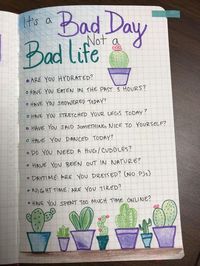 It's a Bad Day
Not a
Bad life
ARE YOU HYDRATED?
HAVE YOU EATEN IN THE PAST 3 HOURS?
HAVE YOU SHOWERED TODAY?
HAVE YOU STRETCHED YOUR LEGS TODAY?
HAVE YOU SAID SOMETHING NICE TO YOURSELF?
HAVE YOU DANCED TODAY?
DO YOU NEED A HUG/CUDDLES?
HAVE YOU BEEN OUT IN NATURE?
DAYTIME: ARE YOU DRESSED? (NO PJs)
NIGHT TIME: ARE YOU TIRED?
HAVE YOU SPENT TOO MUCH TIME ONLINE?